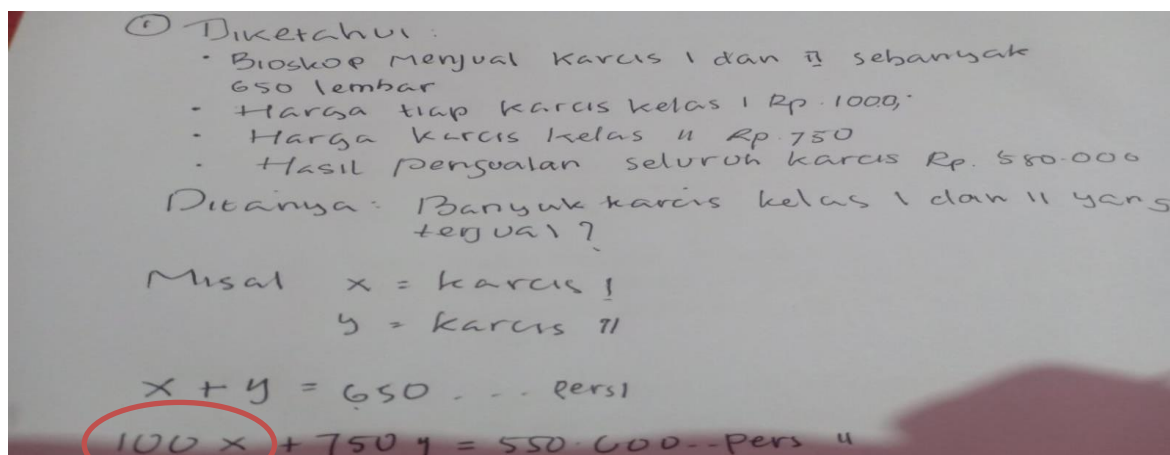 ① Diketahui :
• Bioskop menjual karcis I dan II sebanyak
650 lembar
• Harga tiap karcis kelas I Rp. 1000,-
• Harga karcis kelas II Rp. 750
• Hasil penjualan seluruh karcis Rp. 580.000
Ditanya : Banyak karcis kelas I dan II yang
terjual ?
Misal x = karcis I
y = karcis II
x + y = 650 ... pers I
100 x + 750 y = 550.000 .. Pers II